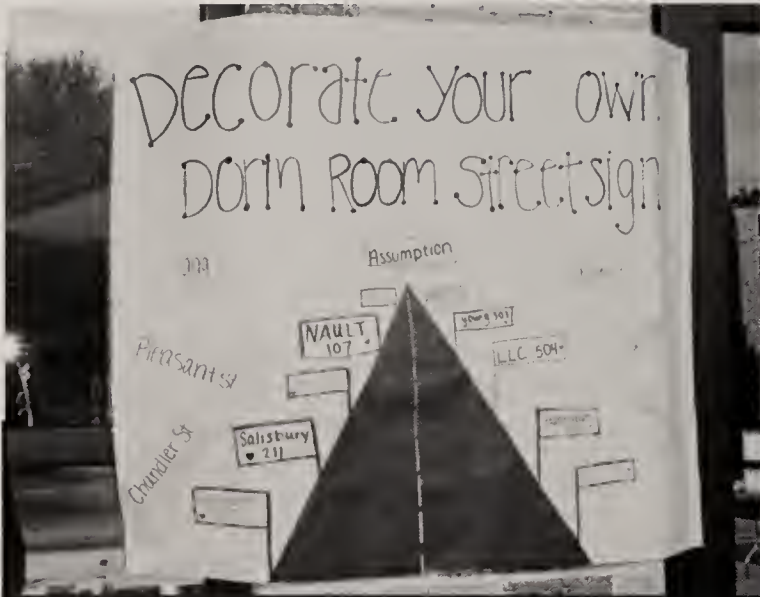 Decorate your own
Dorm Room Streetsign
Assumption
NAULT
107
young 301
LLC 504
Pleasant St
Salisbury
♥ 211
Chandler St